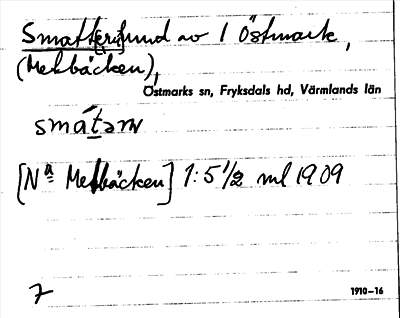 Smatt[eru]und av 1 Östmark,
(Mekbäcken),
Östmarks sn, Fryksdals hd, Värmlands län
smátərn
[Nª Mekbäcken] 1:5 1/2 ml 1909
7
1910–16